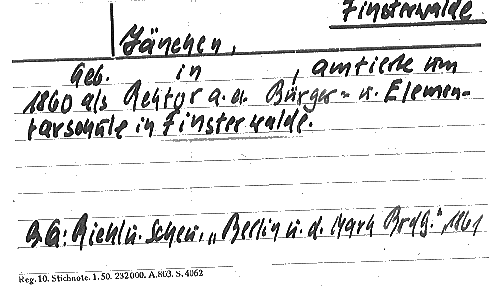 Finsterwalde
Jänchen,
Geb. in , amtierte um
1860 als Rektor a. d. Bürger- u. Elemen-
tarschule in Finsterwalde.
B.G: Riehl u. Scheu, „Berlin u. d. Mark Brdg.", 1861
Reg. 10. Stichnote. 1. 50. 232000. A.803. S. 4062